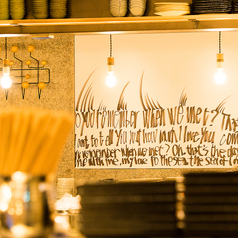 you remember when we met? Th
want to tell you just how much I love you
remember when we met? Oh, that's the day
me with me, my love to the sea, the sea of